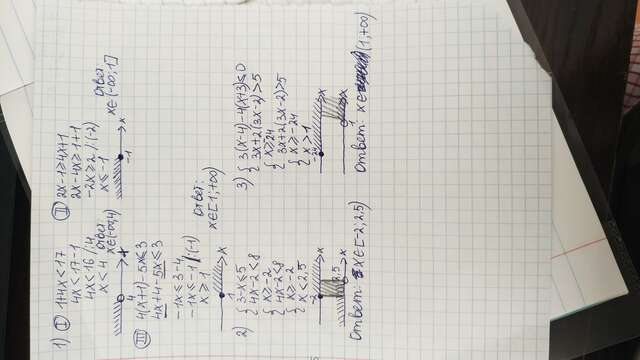 1) I 1+4x<17
4x<17-1
4x<16 /:4
x<4
Ответ:
x∈(-∞;4)
4
x
II 2x-1≥4x+1
2x-4x≥1+1
-2x≥2 /:(-2)
x≤-1
-1
x
Ответ:
x∈(-∞;1]
III 4(x+1)-5x≤3
4x+4-5x≤3
-1x≤3-4
-1x≤-1 /(-1)
x≥1
1
x
Ответ:
x∈[1;+∞)
2) { 3-x≤5
{ 4x-2<8
{ x≥-2
{ 4x-2<8
{ x≥-2
{ x<2,5
-2
x
2,5
x
Ответ: x∈[-2;2,5)
3) { 3(x-4)-4(x+3)≤0
{ 3x+2(3x-2)>5
{ x≥24
{ 3x+2(3x-2)>5
{ x≥-24
{ x>1
-24
x
1
x
Ответ: x∈(1;+∞)